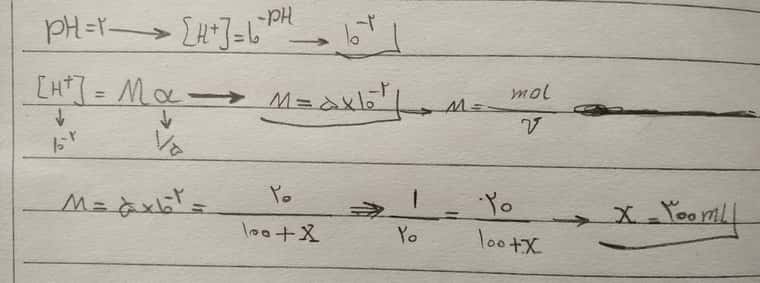 pH=۲ → [H⁺]=۱۰^-pH → ۱۰^-۲
[H⁺] = Mα → M = ۵×۱۰^-۲ → M = mol/V
↓ ۱۰^-۲ ↓ ۱/۵
M = ۵×۱۰^-۲ = ۲۰/(۱۰۰+X) ⇒ ۱/۲۰ = ۲۰/(۱۰۰+X) → X = ۳۰۰ mL